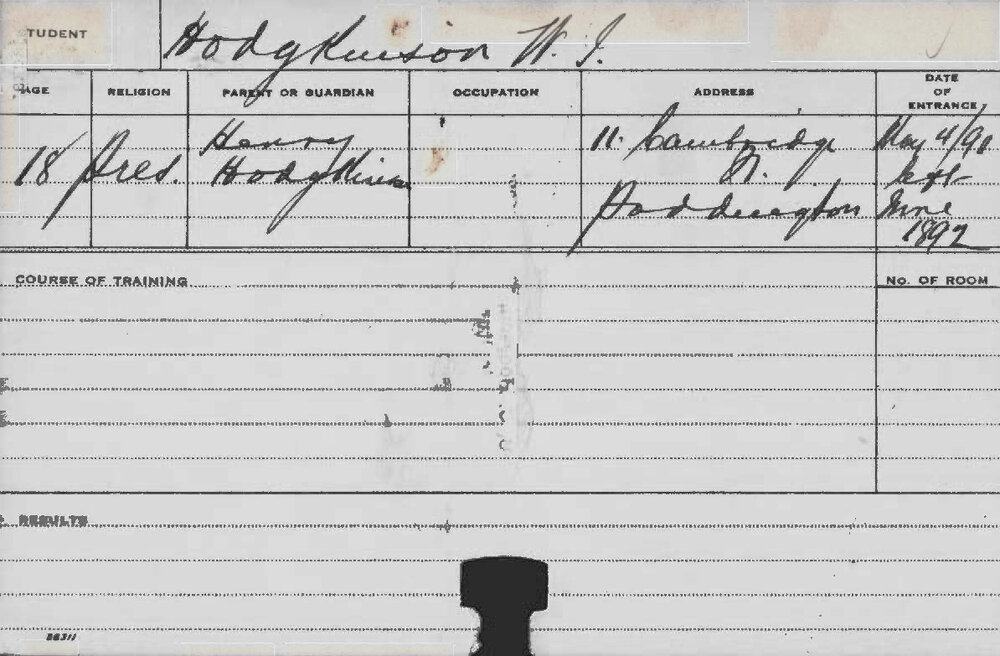 STUDENT Hodgkinson W. J.
AGE RELIGION PARENT OR GUARDIAN OCCUPATION ADDRESS DATE OF ENTRANCE
18 Pres. Henry Hodgkinson 11. Cambridge St. Paddington May 4/91 left June 1892
COURSE OF TRAINING NO. OF ROOM
RESULTS